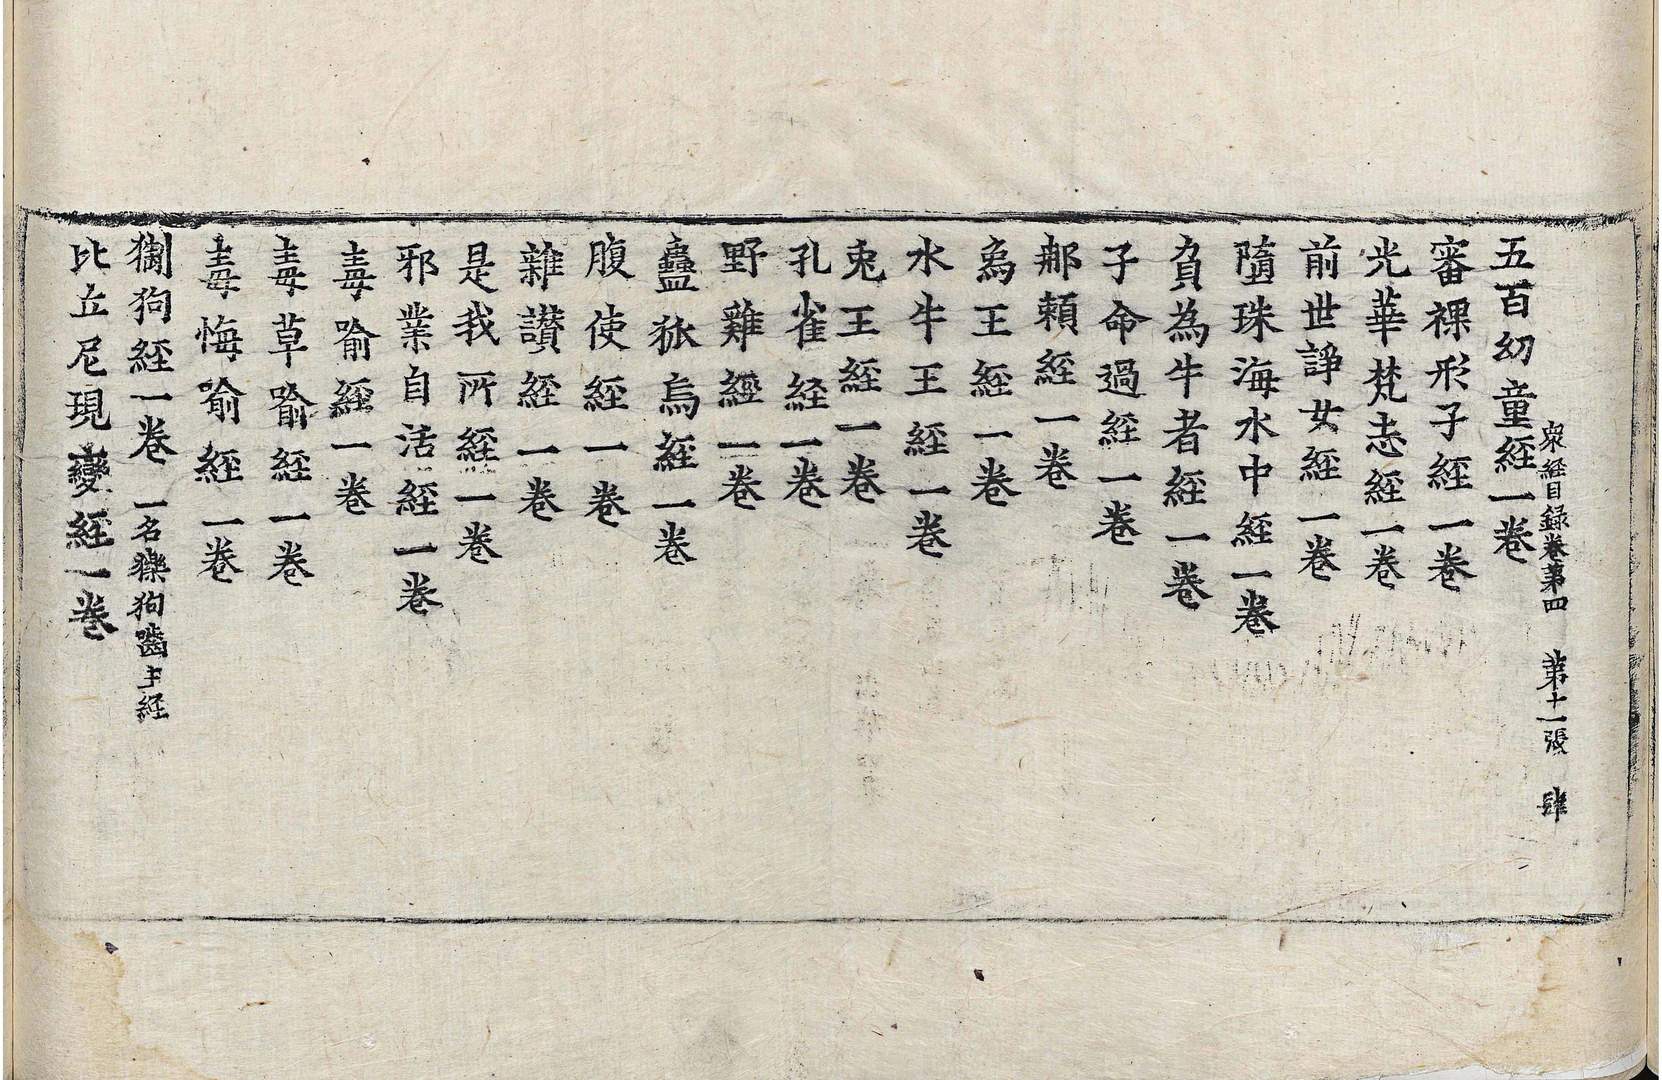 衆經目録卷第四　第十一張　肆
五百幼童經一卷
審裸形子經一卷
光華梵志經一卷
前世諍女經一卷
隨珠海水中經一卷
負為牛者經一卷
子命過經一卷
郍頼經一卷
烏王經一卷
水牛王經一卷
兎王經一卷
孔雀経一卷
野雞經一卷
蠱狐烏經一卷
腹使經一卷
雜讃經一卷
是我所經一卷
邪業自活經一卷
毒喻經一卷
毒草喻經一卷
毒悔喻經一卷
猘狗經一卷　一名㹊狗嚙主經
比丘尼現變經一卷